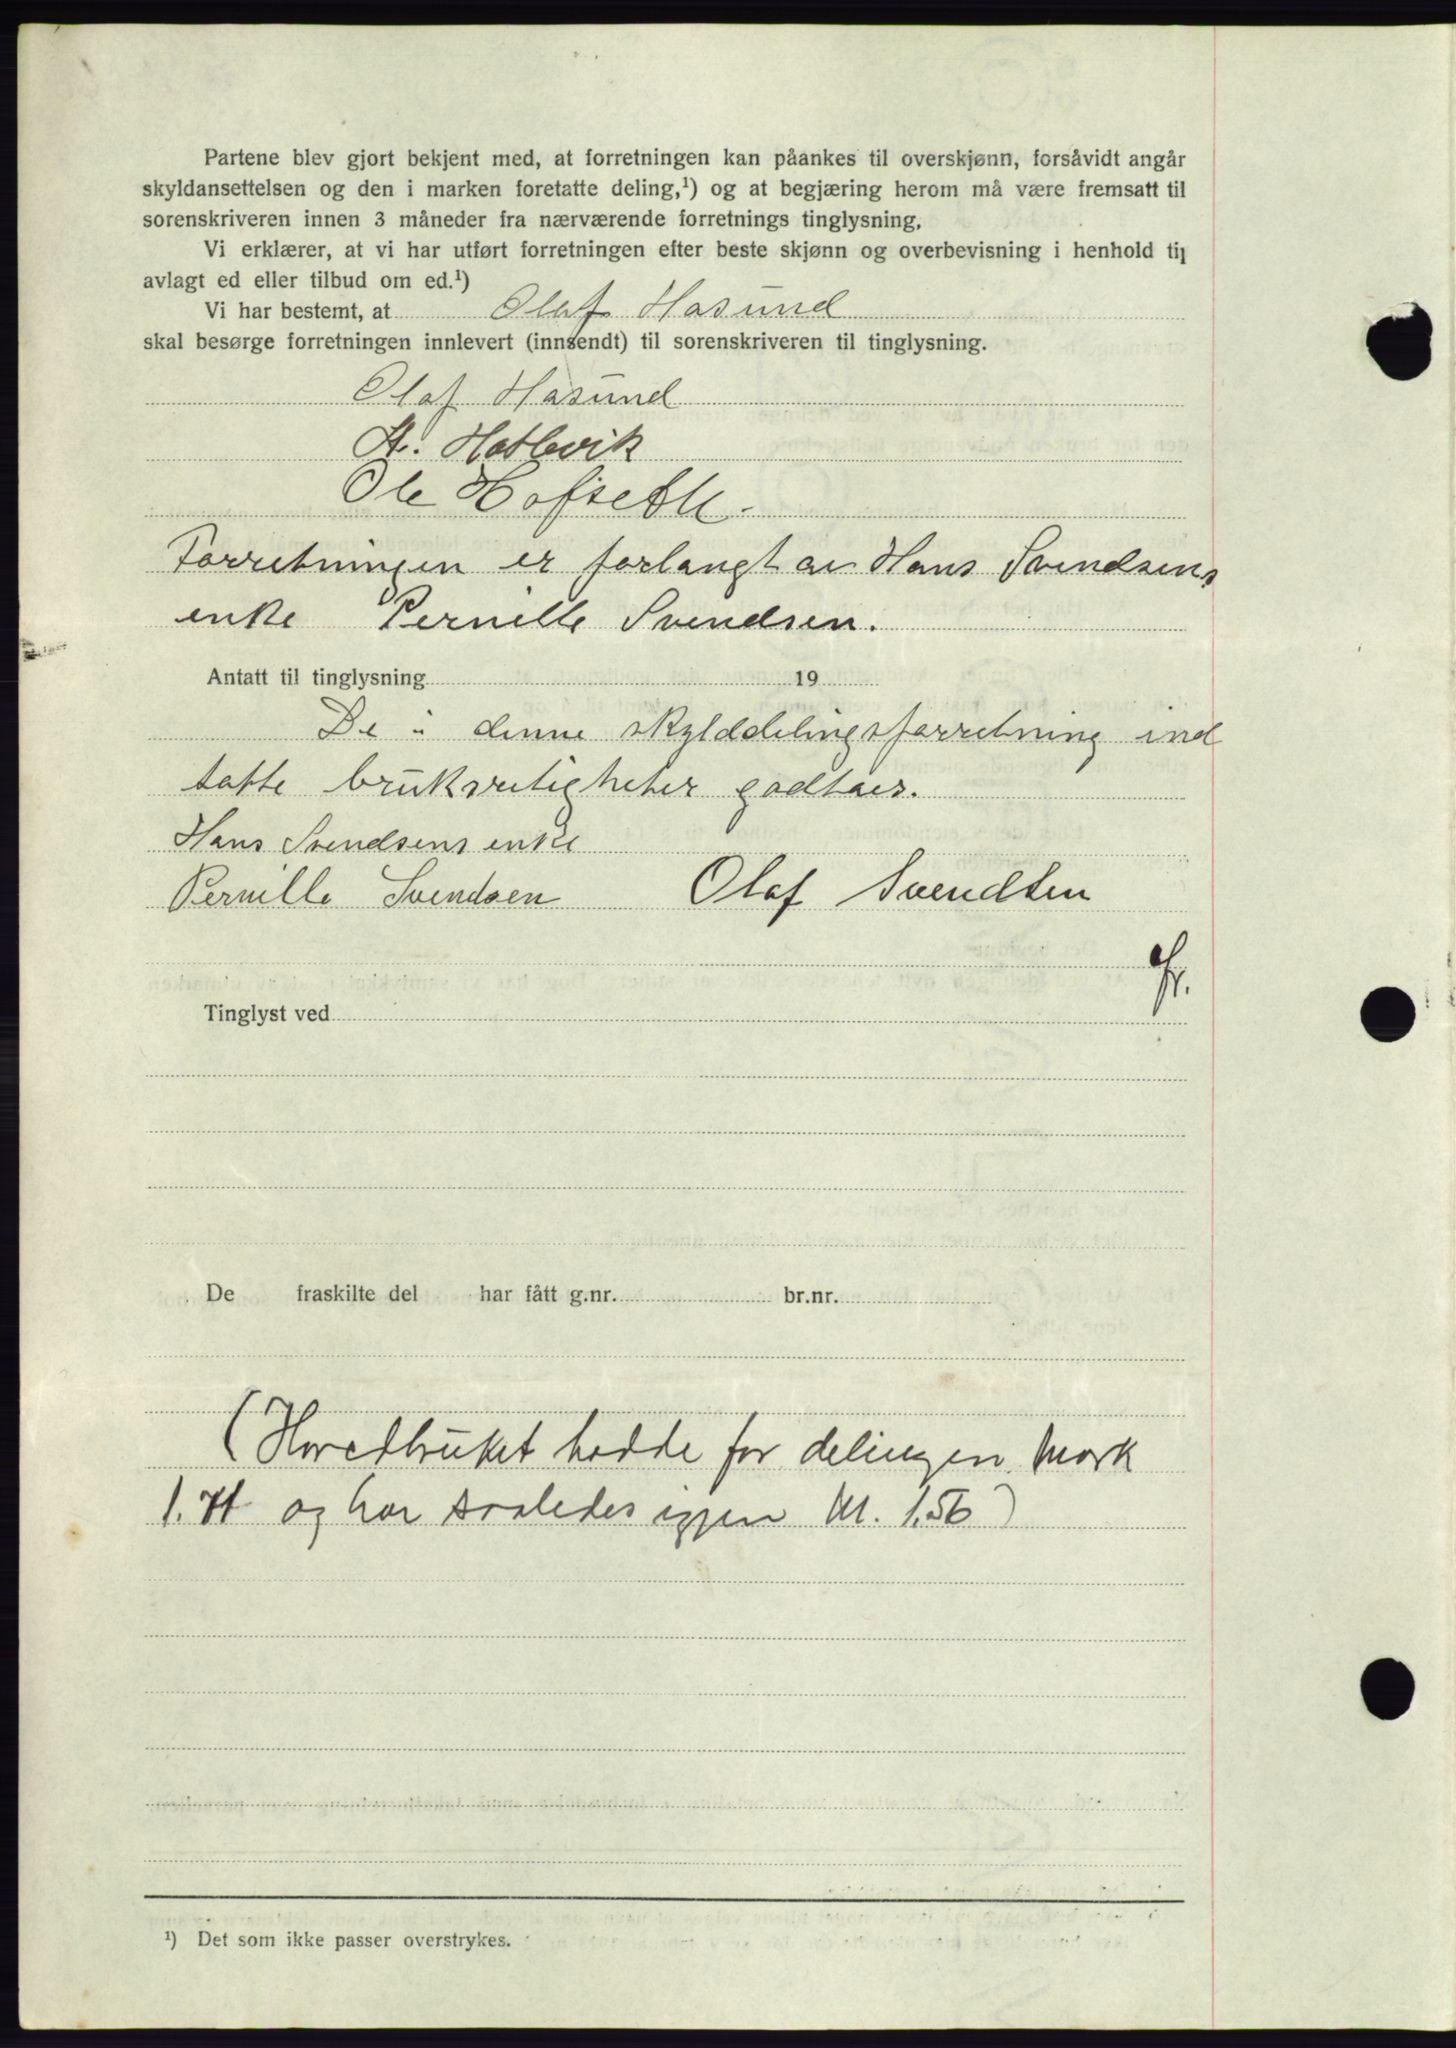 Partene blev gjort bekjent med, at forretningen kan påankes til overskjønn, forsåvidt angår
skyldansettelsen og den i marken foretatte deling,¹) og at begjæring herom må være fremsatt til
sorenskriveren innen 3 måneder fra nærværende forretnings tinglysning.
Vi erklærer, at vi har utført forretningen efter beste skjønn og overbevisning i henhold til
avlagt ed eller tilbud om ed.¹)
Vi har bestemt, at Olaf Hasund
skal besørge forretningen innlevert (innsendt) til sorenskriveren til tinglysning.
Olaf Hasund
Hatlevik
Ole Hofseth.
Forretningen er forlangt av Hans Svendsens
enke Pernille Svendsen.
Antatt til tinglysning 19
De i denne skylddelingsforretning ind
tatte bruksretigheter godtaes.
Hans Svendsens enke
Pernille Svendsen Olaf Svendsen
Tinglyst ved
De fraskilte del har fått g.nr. br.nr.
(Hovedbruket hadde før delingen Mark
1.71 og har saaledes igjen M. 1.56)
¹) Det som ikke passer overstrykes.